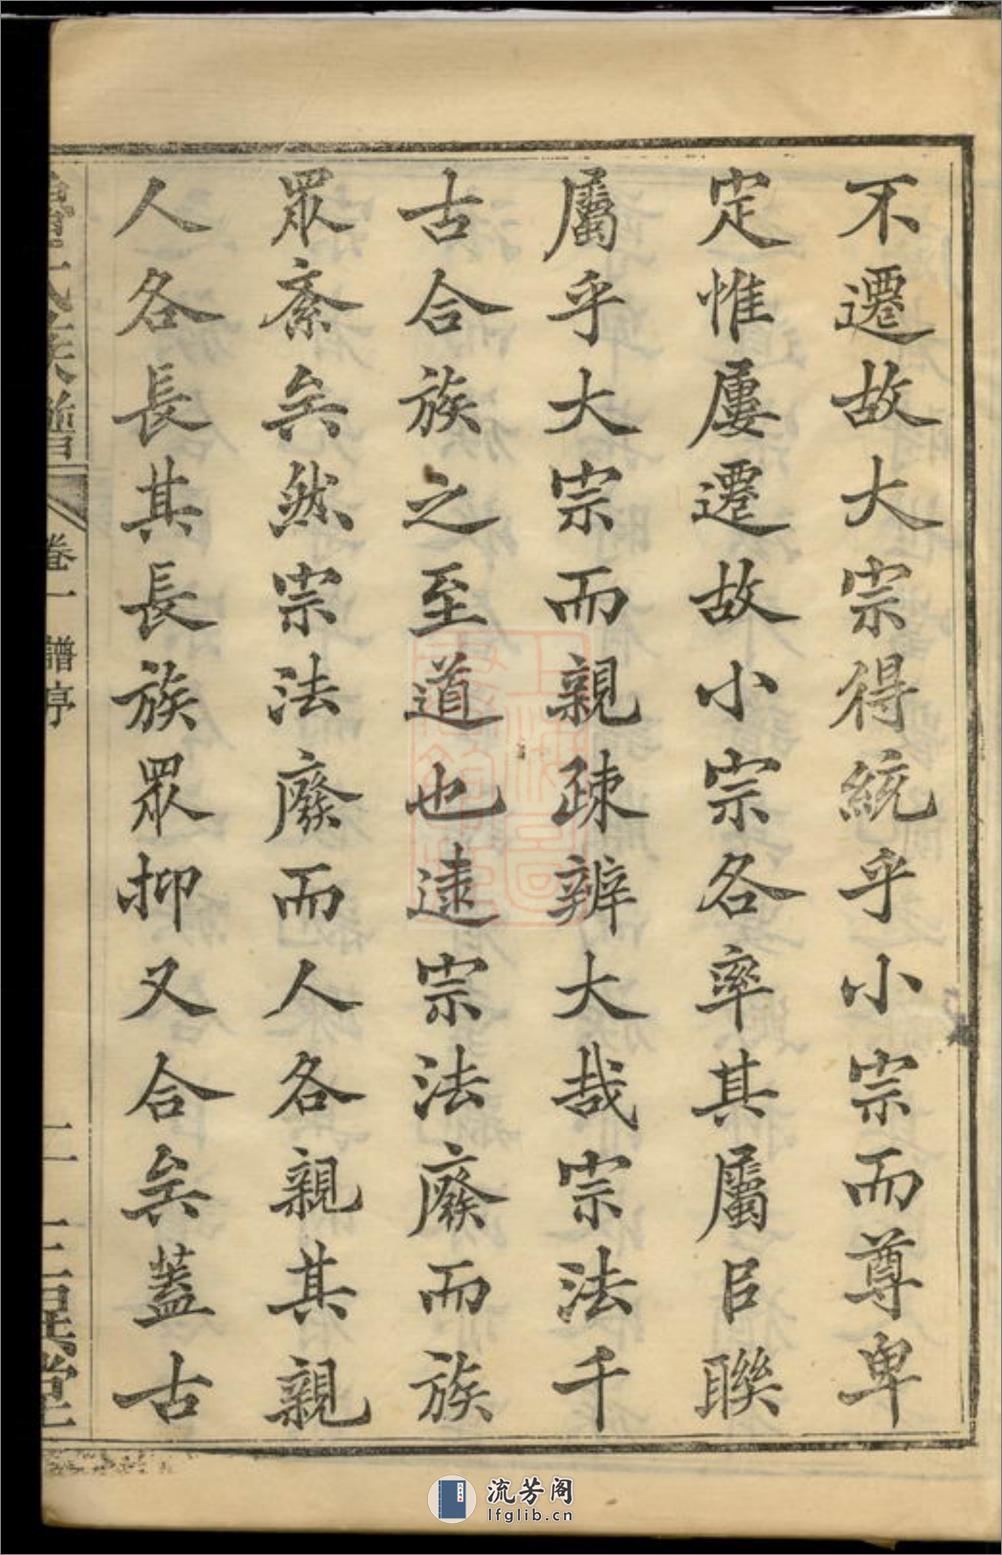 不遷故大宗得統乎小宗而尊卑
定惟屢遷故小宗各率其屬㠯聯
屬乎大宗而親疎辨大哉宗法千
古合族之至道也逮宗法廢而族
眾紊矣然宗法廢而人各親其親
人各長其長族眾抑又合矣蓋古
氏族譜
卷一 譜序
二
三槐堂
流芳阁
lfglib.cn